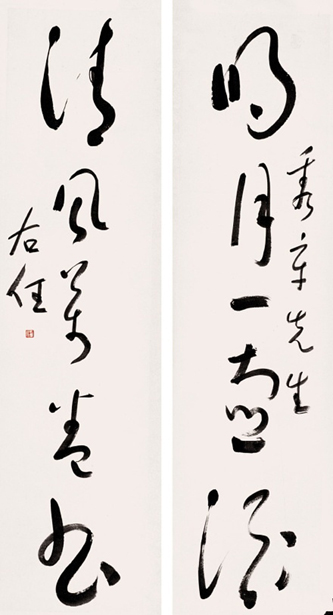 明月一壺酒
先生
清風萬卷書
右任